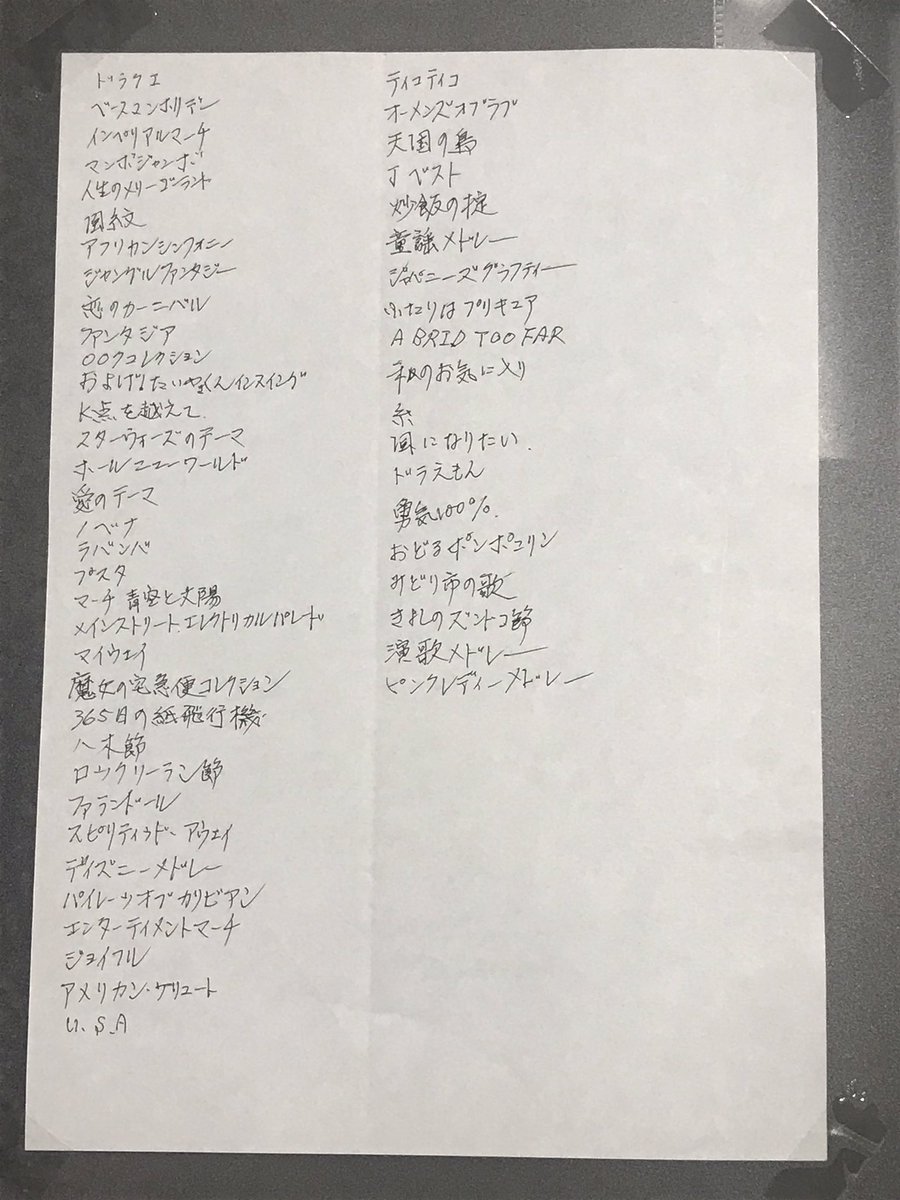 ドラクエ
ベースマンホリデー
インペリアルマーチ
マンボジャンボ
人生のメリーゴーランド
風紋
アフリカンシンフォニー
ジャングルファンタジー
恋のカーニバル
ファンタジア
007コレクション
およげ!たいやきくんインスイング
K点を越えて
スターウォーズのテーマ
ホールニューワールド
愛のテーマ
ノベナ
ラバンバ
プスタ
マーチ 青空と太陽
メインストリート.エレクトリカルパレード
マイウェイ
魔女の宅急便コレクション
365日の紙飛行機
八木節
ロックリーラン節
ファランドール
スピリティゥド・アウェイ
ディズニーメドレー
パイレーツオブカリビアン
エンターティメントマーチ
ジョイフル
アメリカン・サリュート
U.S.A
ティコティコ
オーメンズオブラブ
天国の島
Jベスト
炒飯の掟
童謡メドレー
ジャパニーズグラフティー
ふたりはプリキュア
A BRID TOO FAR
私のお気に入り
糸
風になりたい.
ドラえもん
勇気100%.
おどるポンポコリン
みどり市の歌
きよしのズンドコ節
演歌メドレー
ピンクレディーメドレー